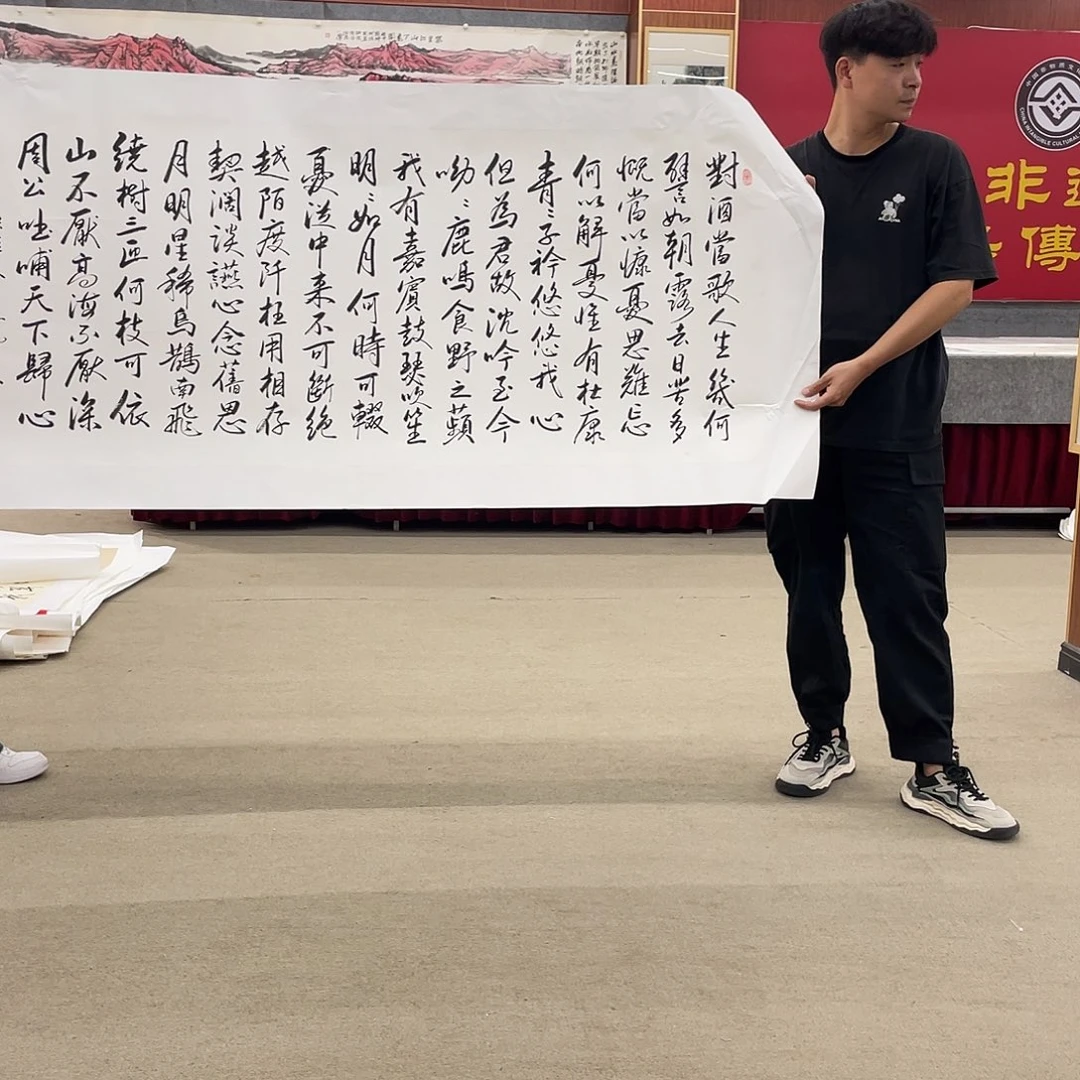 對酒當歌人生幾何
譬如朝露去日苦多
慨當以慷憂思難忘
何以解憂惟有杜康
青〻子衿悠悠我心
但為君故沈吟至今
呦〻鹿鳴食野之蘋
我有嘉賓鼓瑟吹笙
明〻如月何時可輟
憂從中来不可斷絕
越陌度阡枉用相存
契濶談讌心念舊恩
月明星稀烏鵲南飛
繞樹三匝何枝可依
山不厭高海不厭深
周公吐哺天下歸心
CHINA INTANGIBLE CULTURAL
非
傳